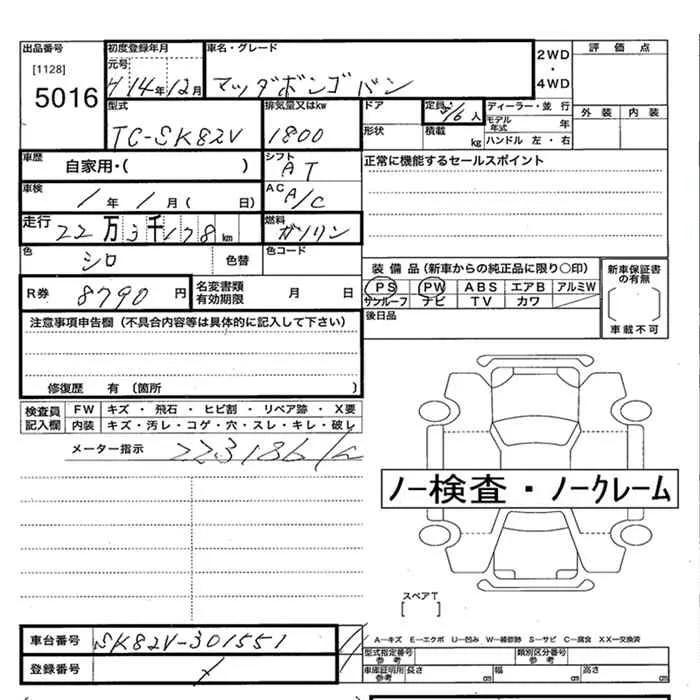 出品番号 初度登録年月 車名・グレード 2WD・4WD 評価点
[1128] 元号
5016 H14年12月 マツダボンゴバン
型式 排気量又はkw ドア 定員 5/6人 ディーラー・並行 外装 内装
TC-SK82V 1800 形状 積載 kg モデル年式 年
ハンドル 左・右
車歴 自家用・( ) シフト AT 正常に機能するセールスポイント
車検 / 年 / 月 ( 日) AC A/C
走行 22万3千178km 燃料 ガソリン
色 シロ 色替 色コード
装備品(新車からの純正品に限り○印) 新車保証書の有無
R券 8790円 名変書類有効期限 月 日
PS PW ABS エアB アルミW
サンルーフ ナビ TV カワ
[ ]
車載不可
注意事項申告欄(不具合内容等は具体的に記入して下さい) 後日品
修復歴 有 (箇所 )
検査員記入欄 FW キズ・飛石・ヒビ割・リペア跡・X要
内装 キズ・汚レ・コゲ・穴・スレ・キレ・破レ
メーター指示 223186
ノー検査・ノークレーム
スペアT
[ ]
A－キズ E－エクボ U－凹み W－補修跡 S－サビ C－腐食 XX－交換済
車台番号 SK82V-301551
型式指定番号 参考 類別区分番号 参考
登録番号
車庫証明用 参考 長さ cm 幅 cm 高さ cm